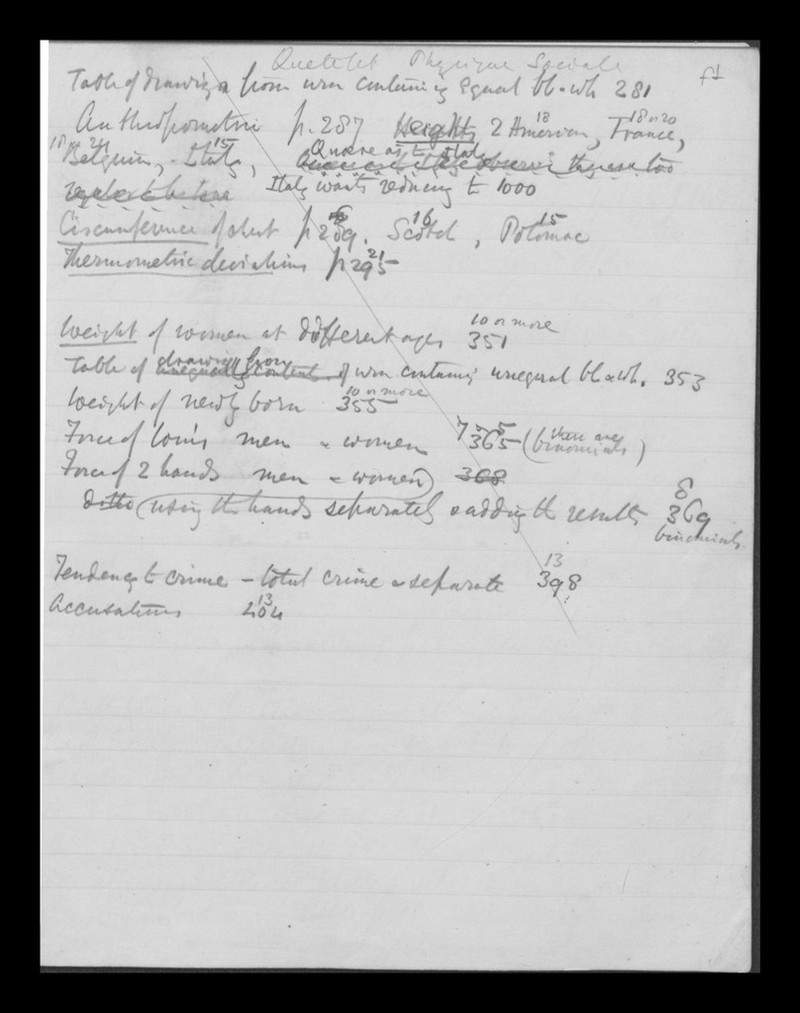 Quetelet Physique Sociale
f1
Table of drawings from urn containing equal bl. wh 281
Anthropometric p. 287 Heights 2 American, 18 France, 18 or 20
18 Belgium, 24 Italy, 15 Quaere as to Italy
Italy wants reducing to 1000
Circumference of chest p 289. Scotch 16, Potomac 15
Thermometric deviations p 295 21
Weight of women at different ages 351 10 or more
Table of drawing from urn containing unequal bl & wh. 353
Weight of newly born 355 10 or more
Force of loins men & women 7 365 5 (these are binomials)
Force of 2 hands men & women) 368
ditto (using the hands separately & adding the results 369 8
binomials
Tendency to crime - total crime & separate 398 13
Accusations 404 13